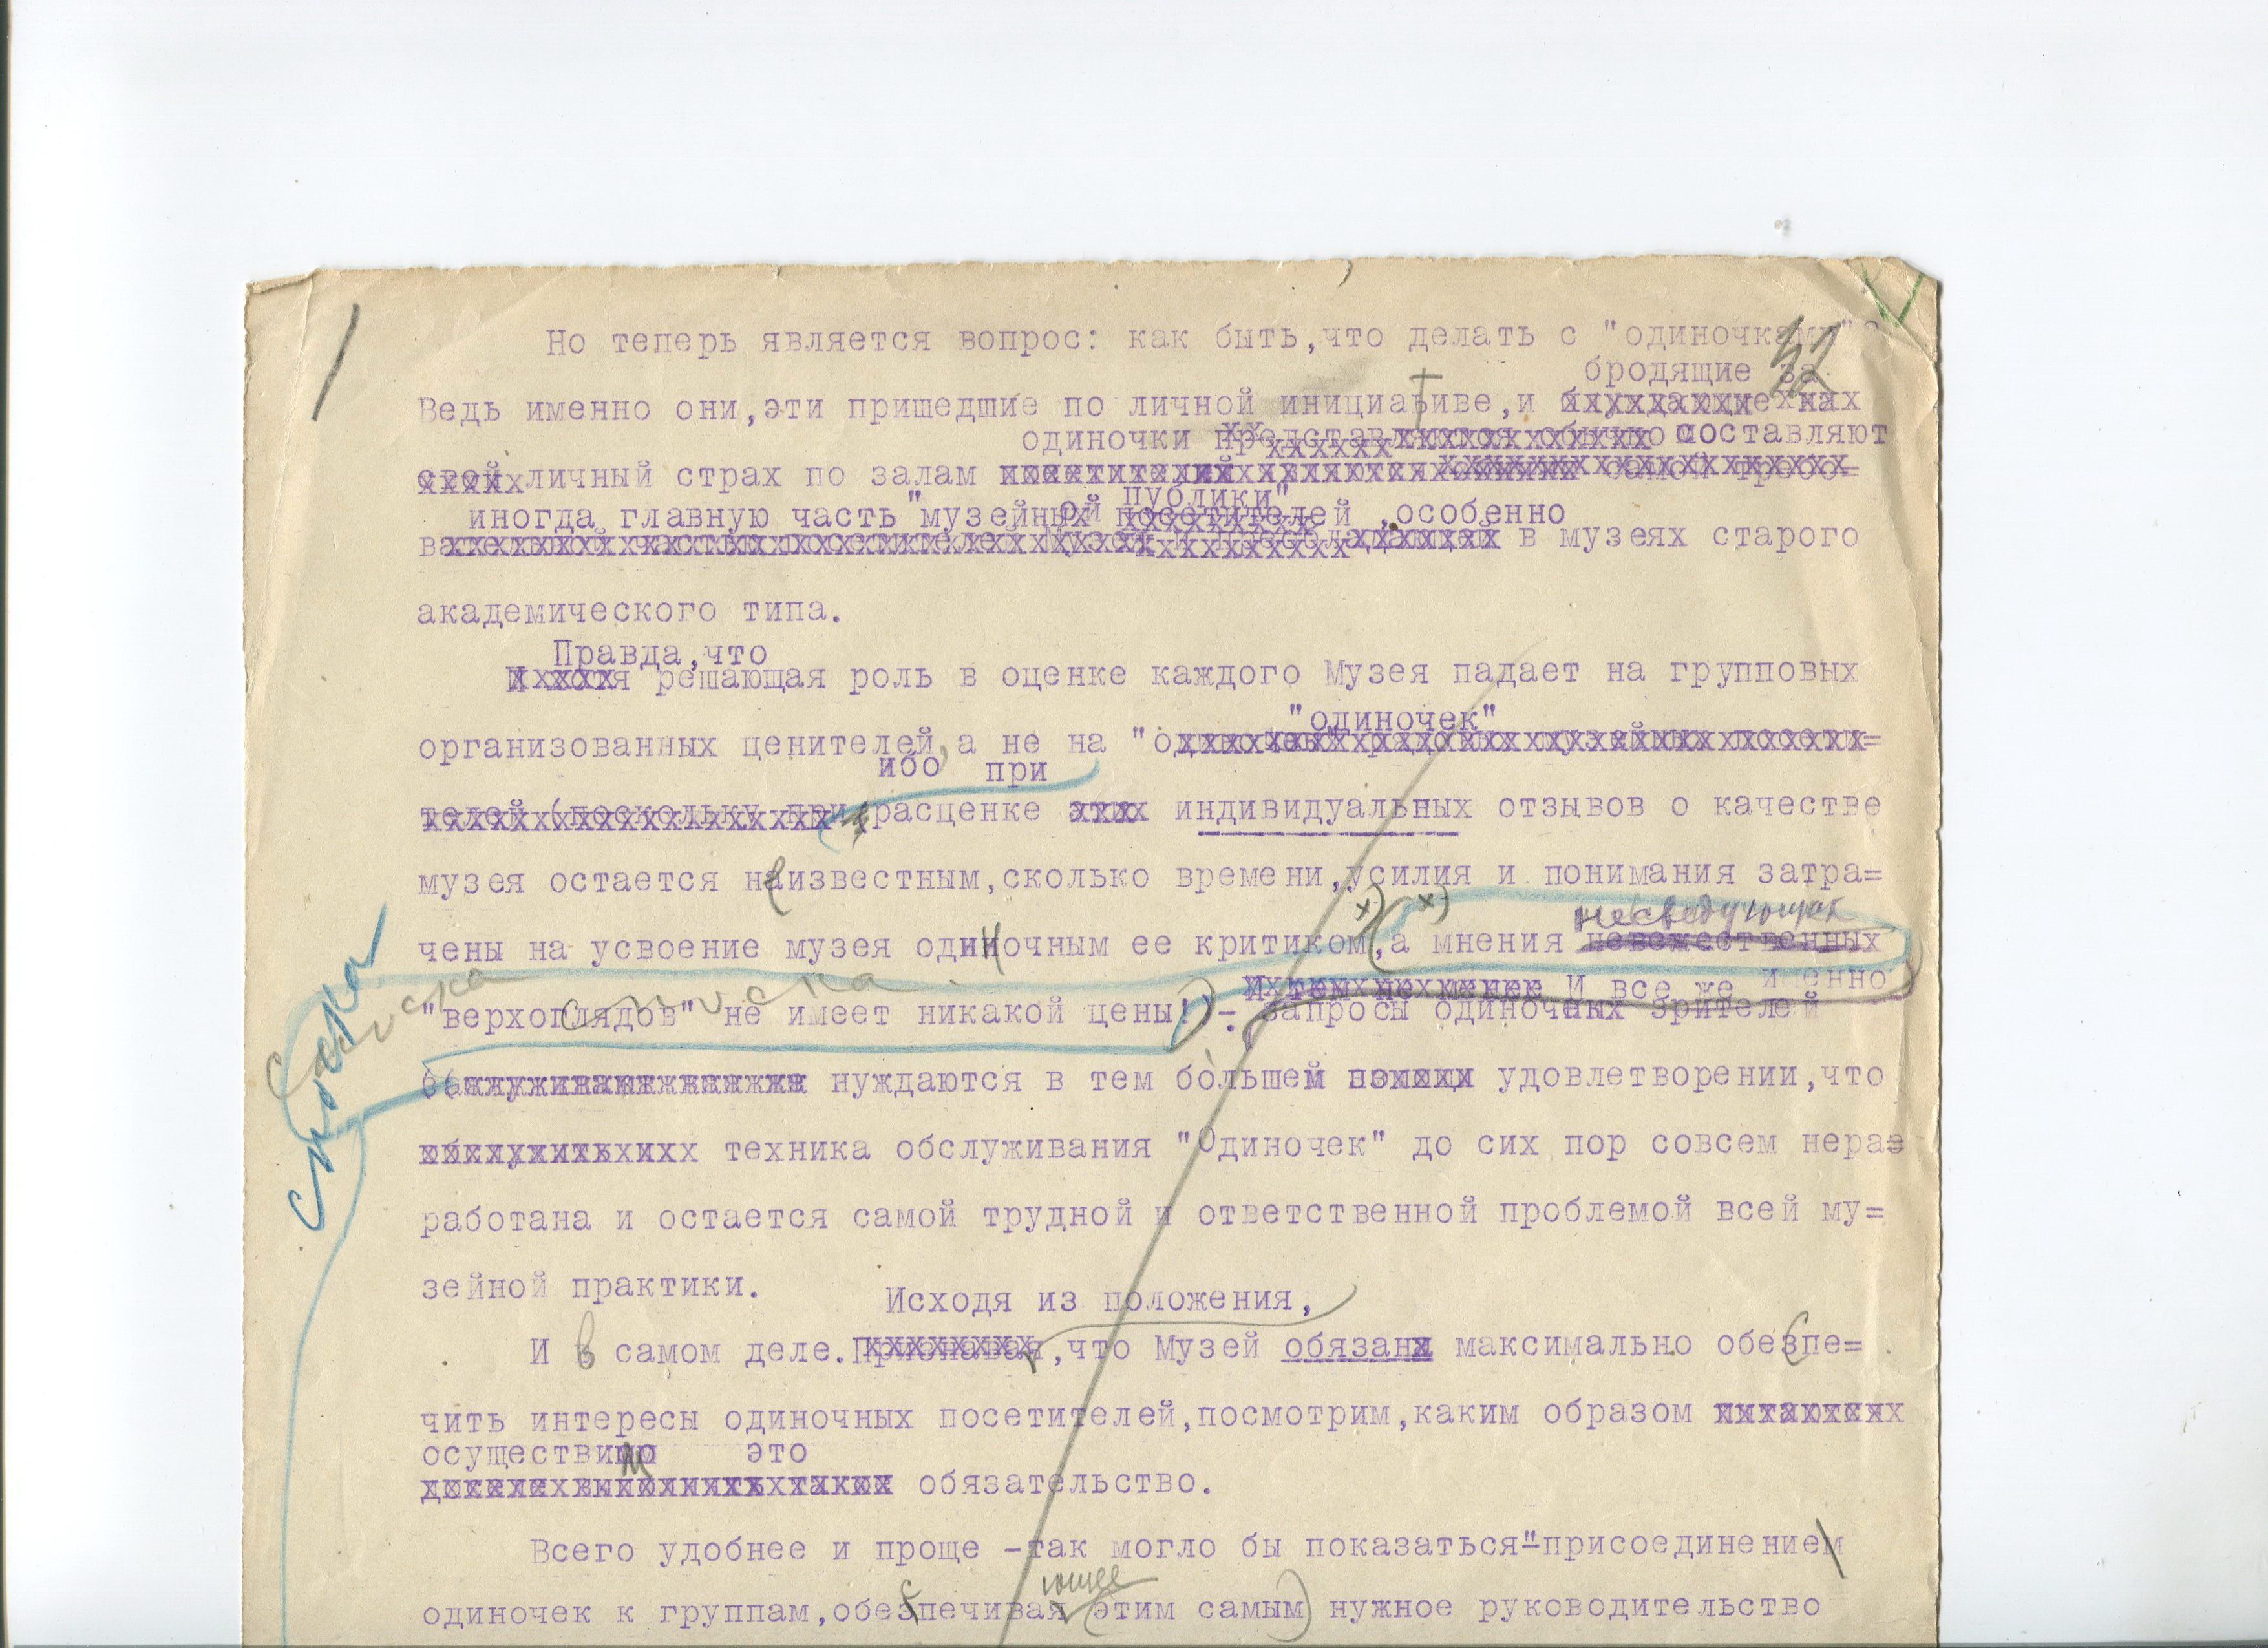 Но теперь является вопрос: как быть,что делать с "одиночками"?
42
бродящие за
Ведь именно они,эти пришедшие по личной инициативе,и
одиночки составляют
свой личный страх по залам
публики"
иногда главную часть "музейной ,особенно
в музеях старого
академического типа.
Правда,что
решающая роль в оценке каждого Музея падает на групповых
"одиночек"
организованных ценителей,а не на
ибо при
телей (поскольку при расценке этих индивидуальных отзывов о качестве
музея остается неизвестным,сколько времени,усилия и понимания затра=
х) х) несведующих
чены на усвоение музея одиночным ее критиком,(а мнения невежественных
сноска сноска
И тем не менее И все же именно
"верхоглядов" не имеет никакой цены!) - запросы одиночных зрителей
сноска
нуждаются в тем бо́льшем удовлетворении,что
техника обслуживания "Одиночек" до сих пор совсем нераз
работана и остается самой трудной и ответственной проблемой всей му=
зейной практики.
Исходя из положения,
И в самом деле.Признавая,что Музей обязан максимально обеспе=
чить интересы одиночных посетителей,посмотрим,каким образом
осуществимо это
обязательство.
Всего удобнее и проще -так могло бы показаться-"присоединением
ющее
одиночек к группам,обеспечивая (этим самым) нужное руководительство